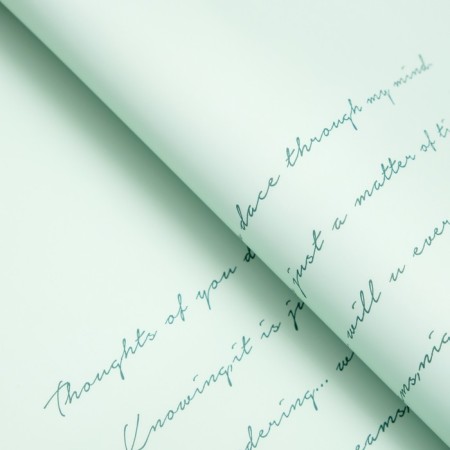 Thoughts of you dace through my mind.
Knowing, it is just a matter of ti
dering... will u ever
eams, nic